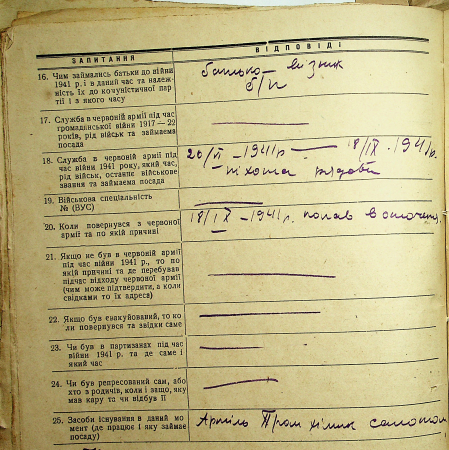 ЗАПИТАННЯ ВІДПОВІДІ
16. Чим займались батьки до війни
1941 р. і в даний час та належ-
ність їх до комуністичної пар
тії і з якого часу
батько — візник
б/п
17. Служба в червоній армії під час
громадянської війни 1917—22
років, рід військ та займаєма
посада
18. Служба в червоній армії під
час війни 1941 року, який час,
рід військ, останнє військове
звання та займаєма посада
20/VI – 1941 р — 18/IX . 1941 р.
– піхота рядови
19. Військова спеціальність
№ (ВУС)
20. Коли повернувся з червоної
армії та по якій причині
18/IX – 1941 р. попав в оточення
21. Якщо не був в червоній армії
під час війни 1941 р., то по
якій причині та де перебував
підчас відходу червоної армії
(чим може підтвердити, а коли
свідками то їх адреса)
22. Якщо був евакуйований, то ко
ли повернувся та звідки саме
23. Чи був в партизанах під час
війни 1941 р. та де саме і
який час
24. Чи був репресований сам, або
хто з родичів, коли і защо, яку
мав кару та чи відбув її
25. Засоби існування в даний мо
мент (де працює і яку займає
посаду)
Пром